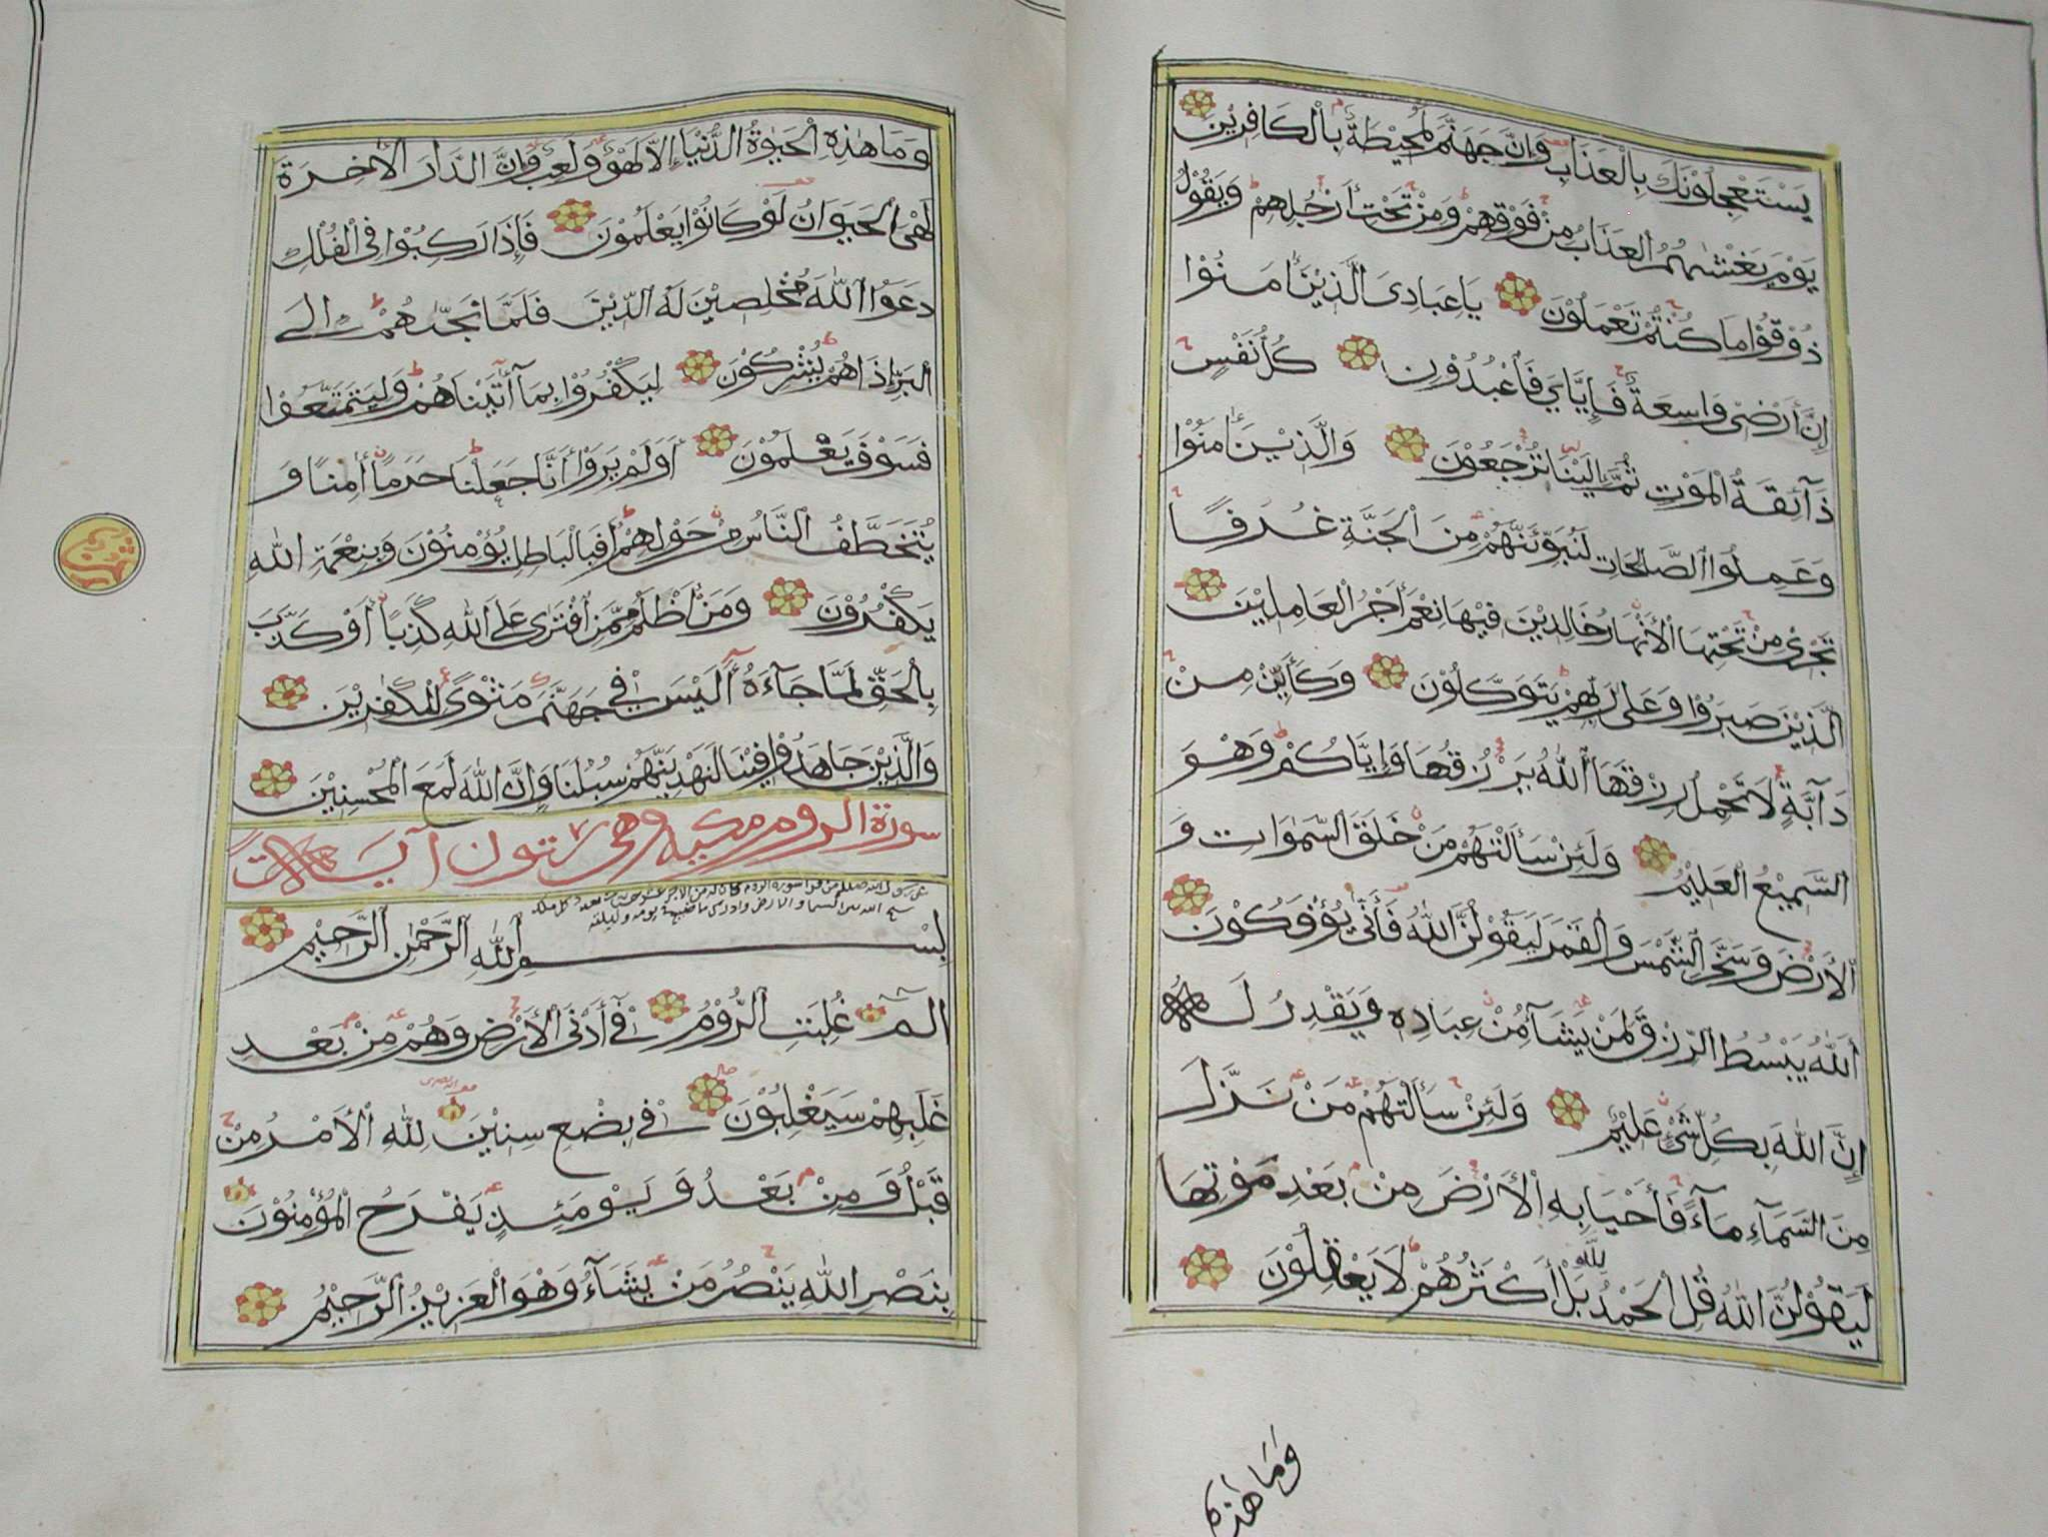 يَسْتَعْجِلُوْنَكَ بِالْعَذَابِ وَاِنَّ جَهَنَّمَ لَمُحِيْطَةٌ بِالْكَافِرِيْنَ
يَوْمَ يَغْشٰىهُمُ الْعَذَابُ مِنْ فَوْقِهِمْ وَمِنْ تَحْتِ أَرْجُلِهِمْ وَيَقُوْلُ
ذُوْقُوْا مَا كُنْتُمْ تَعْمَلُوْنَ يَا عِبَادِىَ الَّذِيْنَ اٰمَنُوْا
اِنَّ أَرْضِى وَاسِعَةٌ فَإِيَّايَ فَاعْبُدُوْنِ كُلُّ نَفْسٍ
ذَآئِقَةُ الْمَوْتِ ثُمَّ إِلَيْنَا تُرْجَعُوْنَ وَالَّذِيْنَ اٰمَنُوْا
وَعَمِلُوا الصَّالِحَاتِ لَنُبَوِّئَنَّهُمْ مِنَ الْجَنَّةِ غُرَفًا
تَجْرِىْ مِنْ تَحْتِهَا الْأَنْهَارُ خَالِدِيْنَ فِيْهَا نِعْمَ أَجْرُ الْعَامِلِيْنَ
الَّذِيْنَ صَبَرُوْا وَعَلٰى رَبِّهِمْ يَتَوَكَّلُوْنَ وَكَأَيِّنْ مِنْ
دَآبَّةٍ لَا تَحْمِلُ رِزْقَهَا اَللّٰهُ يَرْزُقُهَا وَإِيَّاكُمْ وَهْوَ
السَّمِيْعُ الْعَلِيْمُ وَلَئِنْ سَأَلْتَهُمْ مَنْ خَلَقَ السَّمٰوَاتِ وَ
الْأَرْضَ وَسَخَّرَ الشَّمْسَ وَالْقَمَرَ لَيَقُوْلُنَّ اللّٰهُ فَأَنّٰى يُؤْفَكُوْنَ
اَللّٰهُ يَبْسُطُ الرِّزْقَ لِمَنْ يَشَآءُ مِنْ عِبَادِهِ وَيَقْدِرُ لَهُ
إِنَّ اللّٰهَ بِكُلِّ شَىْءٍ عَلِيْمٌ وَلَئِنْ سَأَلْتَهُمْ مَنْ نَزَّلَ
مِنَ السَّمَآءِ مَآءً فَأَحْيَا بِهِ الْأَرْضَ مِنْ بَعْدِ مَوْتِهَا
لَيَقُوْلُنَّ اللّٰهُ قُلِ الْحَمْدُ لِلّٰهِ بَلْ أَكْثَرُهُمْ لَا يَعْقِلُوْنَ
وَمَا هٰذِهِ
وَمَا هٰذِهِ الْحَيٰوةُ الدُّنْيَا إِلَّا لَهْوٌ وَلَعِبٌ وَإِنَّ الدَّارَ الْاٰخِرَةَ
لَهْىَ الْحَيَوَانُ لَوْ كَانُوْا يَعْلَمُوْنَ فَإِذَا رَكِبُوْا فِى الْفُلْكِ
دَعَوُا اللّٰهَ مُخْلِصِيْنَ لَهُ الدِّيْنَ فَلَمَّا نَجّٰىهُمْ إِلَى
الْبَرِّ إِذَا هُمْ يُشْرِكُوْنَ لِيَكْفُرُوْا بِمَا اٰتَيْنَاهُمْ وَلِيَتَمَتَّعُوْا
فَسَوْفَ يَعْلَمُوْنَ أَوَلَمْ يَرَوْا أَنَّا جَعَلْنَا حَرَمًا اٰمِنًا وَ
يُتَخَطَّفُ النَّاسُ مِنْ حَوْلِهِمْ أَفَبِالْبَاطِلِ يُؤْمِنُوْنَ وَبِنِعْمَةِ اللّٰهِ
يَكْفُرُوْنَ وَمَنْ أَظْلَمُ مِمَّنِ افْتَرٰى عَلَى اللّٰهِ كَذِبًا أَوْ كَذَّبَ
بِالْحَقِّ لَمَّا جَآءَهُ أَلَيْسَ فِي جَهَنَّمَ مَثْوًى لِلْكٰفِرِيْنَ
وَالَّذِيْنَ جَاهَدُوْا فِيْنَا لَنَهْدِيَنَّهُمْ سُبُلَنَا وَإِنَّ اللّٰهَ لَمَعَ الْمُحْسِنِيْنَ
سورة الروم مكية وهى ستون آيات
بِسْمِ اللّٰهِ الرَّحْمٰنِ الرَّحِيْمِ
الم غُلِبَتِ الرُّوْمُ فِى أَدْنَى الْأَرْضِ وَهُمْ مِنْ بَعْدِ
غَلَبِهِمْ سَيَغْلِبُوْنَ فِى بِضْعِ سِنِيْنَ لِلّٰهِ الْأَمْرُ مِنْ
قَبْلُ وَمِنْ بَعْدُ وَيَوْمَئِذٍ يَفْرَحُ الْمُؤْمِنُوْنَ
بِنَصْرِ اللّٰهِ يَنْصُرُ مَنْ يَشَآءُ وَهْوَ الْعَزِيْزُ الرَّحِيْمُ